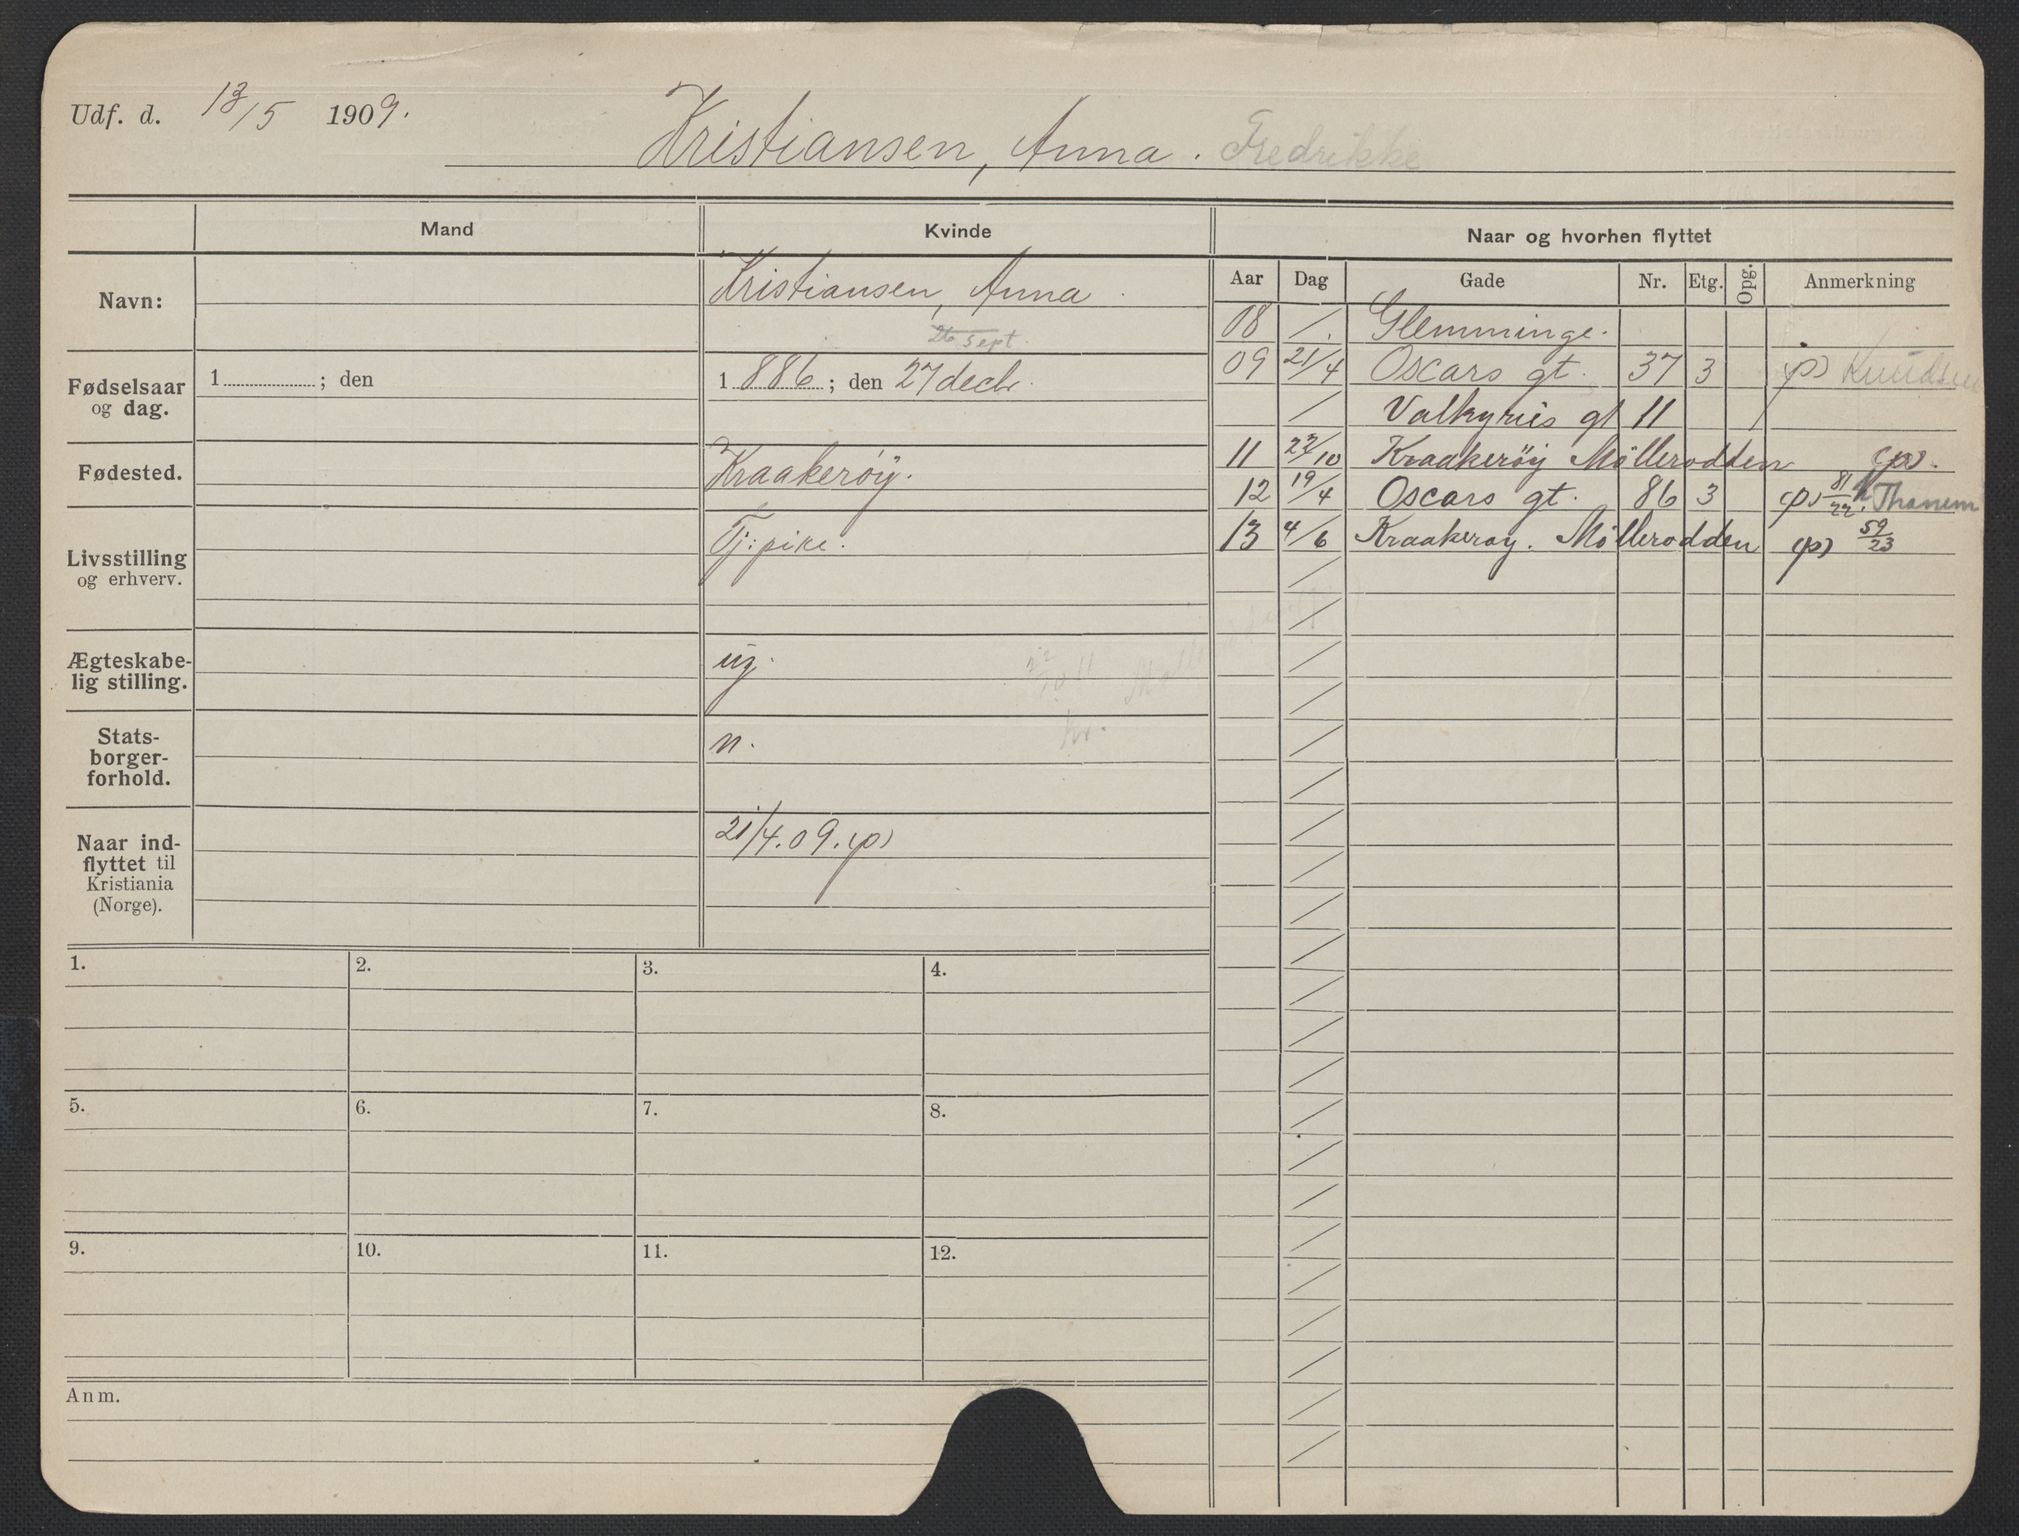 Udf. d. 13/5 1909.
Kristiansen, Anna. Fredrikke
Mand
Kvinde
Naar og hvorhen flyttet
Navn:
Kristiansen, Anna.
26 sept.
Fødselsaar og dag.
1 ; den
1886; den 27 decbr.
Fødested.
Kraakerøy.
Livsstilling og erhverv.
Tj: pike.
Ægteskabelig stilling.
ug.
Statsborgerforhold.
n.
Naar indflyttet til Kristiania (Norge).
21/4.09.(p)
Aar Dag Gade Nr. Etg. Opg. Anmerkning
08 / Glemminge.
09 21/4 Oscars gt. 37 3 (p) Knudsen
/ Valkyries gt 11
11 22/10 Kraakerøy Møllerodden (p).
12 19/4 Oscars gt. 86 3 (p) 81/22. Thanem
13 4/6 Kraakerøy. Møllerodden (p) 59/23
22/10 11
kr.
1. 2. 3. 4.
5. 6. 7. 8.
9. 10. 11. 12.
Anm.